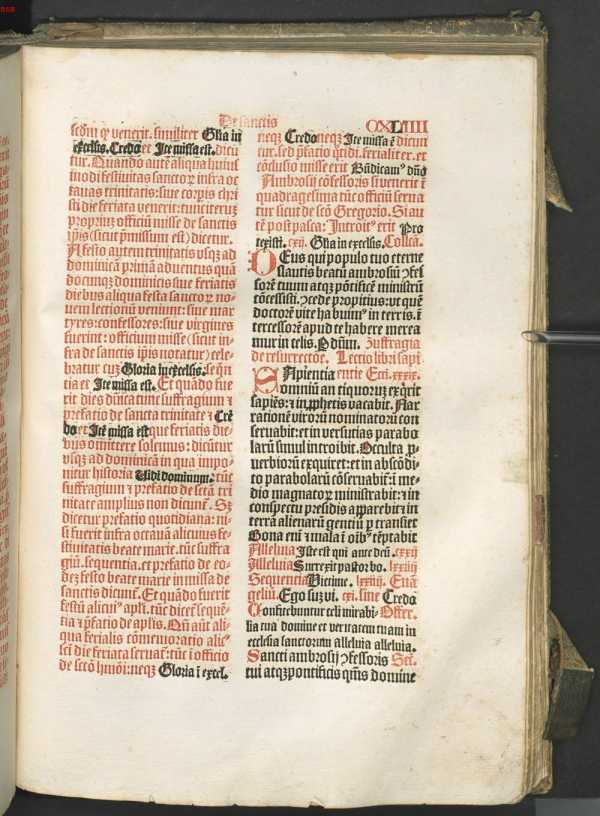 De sanctis
CXLIIII
scḋm qͦ venerit. similiter Glia in
excelsis. Credo et Ite missa est. dicū
tur. Quando autē aliqua huius
modi festiuitas sanctoꝝ infra oc
tauas trinitatis: siue corpis chri
sti die feriata venerit: tūc iterūꝫ
propriū officiū misse de sanctis
ipīs (sicut pmissum est) dicetur.
A festo autem trinitatis vsqꝫ ad
dominicā primā aduentus quā
docunqꝫ dominicis siue feriatis
diebus aliqua festa sanctoꝝ no-
uem lectionū veniunt: siue mar
tyres: confessores: siue virgines
fuerint: officium misse (sicut in-
fra de sanctis ipīs notatur) cele-
bratur cuꝫ Gloria in excelsis. seqn̄
tia et Ite missa est. Et quādo fue
rit dies dn̄ica tunc suffragium ⁊
prefatio de sancta trinitate ⁊ Cre
do et Ite missa est que feriatis die-
bus omittere solemus: dicūtur
vsqꝫ ad dominicā in qua impo-
nitur historia Vidi dominum. tūc
suffragium ⁊ prefatio de sctā tri
nitate amplius non dicunt̄. Sꝫ
dicetur prefatio quotidiana: ni-
si fuerit infra octauā alicuius fe-
stiuitatis beate marie. tūc suffra
giū. sequentia. et prefatio de eo-
deꝫ festo beate marie in missa de
sanctis dicunt̄. Et quādo fuerit
festū alicuiꝰ apli. tūc dicet̄ sequē-
tia ⁊ pfatio de aplis. Qn̄ aūt ali-
qua ferialis cōmemoratio alic
sci die feriata seruat̄: tūc i officio
de sctō hmōi: neqꝫ Gloria ī excel.
neqꝫ Credo neqꝫ Ite missa ē dicun
tur. sed pfatio qtidi. ferialiter. et
cōclusio misse erit Bn̄dicamꝰ dn̄o
Ambrosij cōfessoris si venerit ī
quadragesima tūc officiū serua
tur sicut de scō Gregorio. Si au
tē post pasca: Introitꝰ erit Pro
texisti. cxij. Glia in excelsis. Collcā.
Deus qui populo tuo eterne
salutis beatū ambrosiū ꝯfes
sorē tuum atqꝫ pōtificē ministrū
tōcessisti. ꝯcede propitius: vt quē
doctorē vite habuimꝰ in terris. ī
tercessorē apud te habere merea
mur in celis. P dn̄m. Suffragia
de resurrectōe. Lectio libri sapi
Sapientia entie Ecci. xxxix.
omniū antiquoruꝫ exqrit
sapiēs: ⁊ in prophetis vacabit. Nar
rationē virorū nominatorū con
seruabit: et in versutias parabo
larū simul introibit. Occulta ꝓ-
uerbiorū exquiret: et in abscōdi-
to parabolarū cōseruabit̄: ī me
dio magnatoꝝ ministrabit: ⁊ in
conspectu presidis apparebit: in
terrā alienarū gentiū ꝑtransiet
Bona em̄ ⁊ mala ī oībꝰ tēptabit
Alleluia Iste est qui ante deū. cxxij
Alleluia Surrexit pastor bo. lxxiij
Sequentia Victime. lxxiiij. Euā
geliū. Ego sum vi. cxi. sine Credo
Confitebuntur celi mirabi- Offer.
lia tua domine et veritatem tuam in
ecclesia sanctorum alleluia alleluia.
Sancti ambrosij ꝯfessoris Sec̄.
tui atqꝫ pontificis qm̄s domine